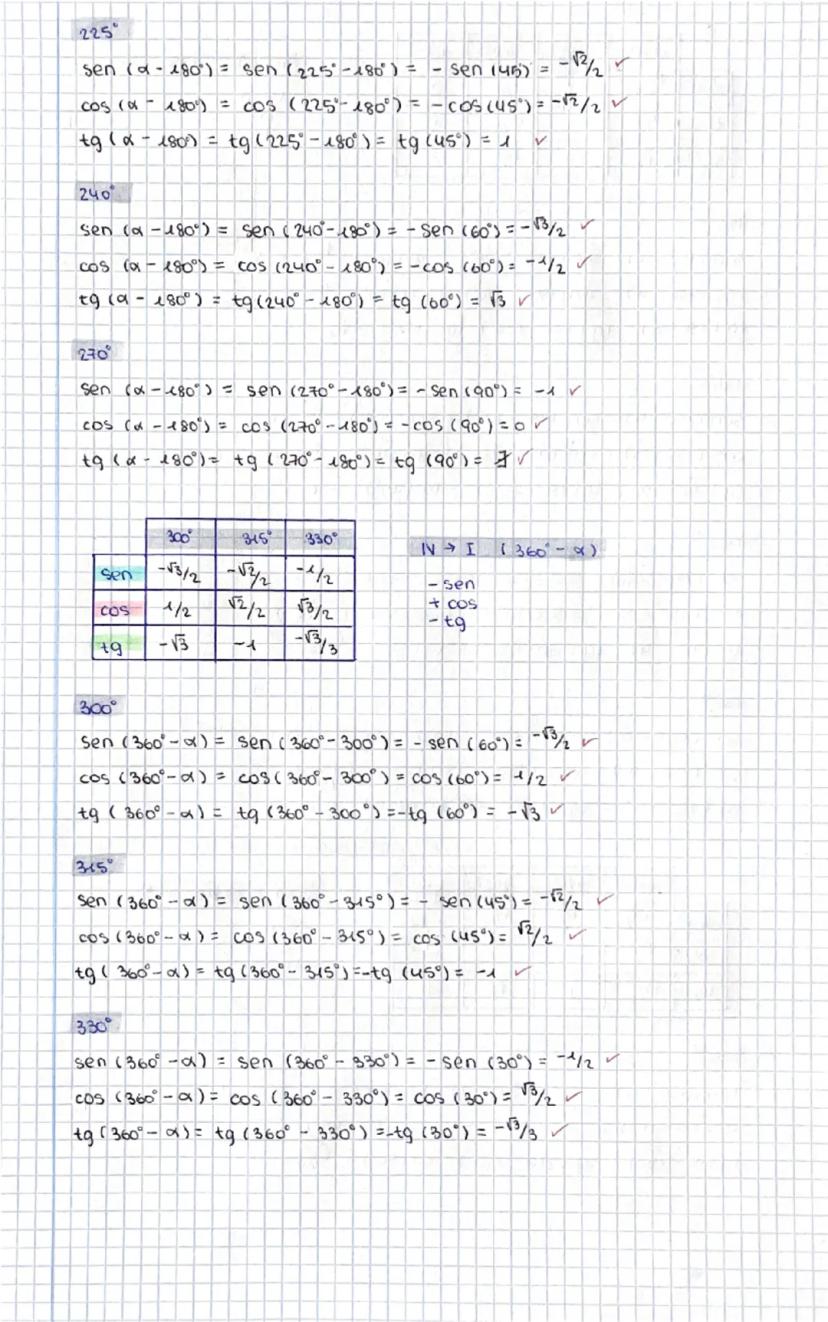 225°
sen (α - 180°) = sen (225° - 180°) = - sen (45) = -√2/2 ✓
cos (α - 180°) = cos (225° - 180°) = -cos (45°) = -√2/2 ✓
tg (α - 180°) = tg (225° - 180°) = tg (45°) = 1 ✓
240°
sen (α - 180°) = sen (240° - 180°) = - sen (60°) = -√3/2 ✓
cos (α - 180°) = cos (240° - 180°) = -cos (60°) = -1/2 ✓
tg (α - 180°) = tg (240° - 180°) = tg (60°) = √3 ✓
270°
sen (α - 180°) = sen (270° - 180°) = - sen (90°) = -1 ✓
cos (α - 180°) = cos (270° - 180°) = -cos (90°) = 0 ✓
tg (α - 180°) = tg (270° - 180°) = tg (90°) = ∄ ✓
300° 315° 330°
sen -√3/2 -√2/2 -1/2
cos 1/2 √2/2 √3/2
tg -√3 -1 -√3/3
IV → I (360° - α)
- sen
+ cos
- tg
300°
sen (360° - α) = sen (360° - 300°) = - sen (60°) = -√3/2 ✓
cos (360° - α) = cos (360° - 300°) = cos (60°) = 1/2 ✓
tg (360° - α) = tg (360° - 300°) = -tg (60°) = -√3 ✓
315°
sen (360° - α) = sen (360° - 315°) = - sen (45°) = -√2/2 ✓
cos (360° - α) = cos (360° - 315°) = cos (45°) = √2/2 ✓
tg (360° - α) = tg (360° - 315°) = -tg (45°) = -1 ✓
330°
sen (360° - α) = sen (360° - 330°) = - sen (30°) = -1/2 ✓
cos (360° - α) = cos (360° - 330°) = cos (30°) = √3/2 ✓
tg (360° - α) = tg (360° - 330°) = -tg (30°) = -√3/3 ✓